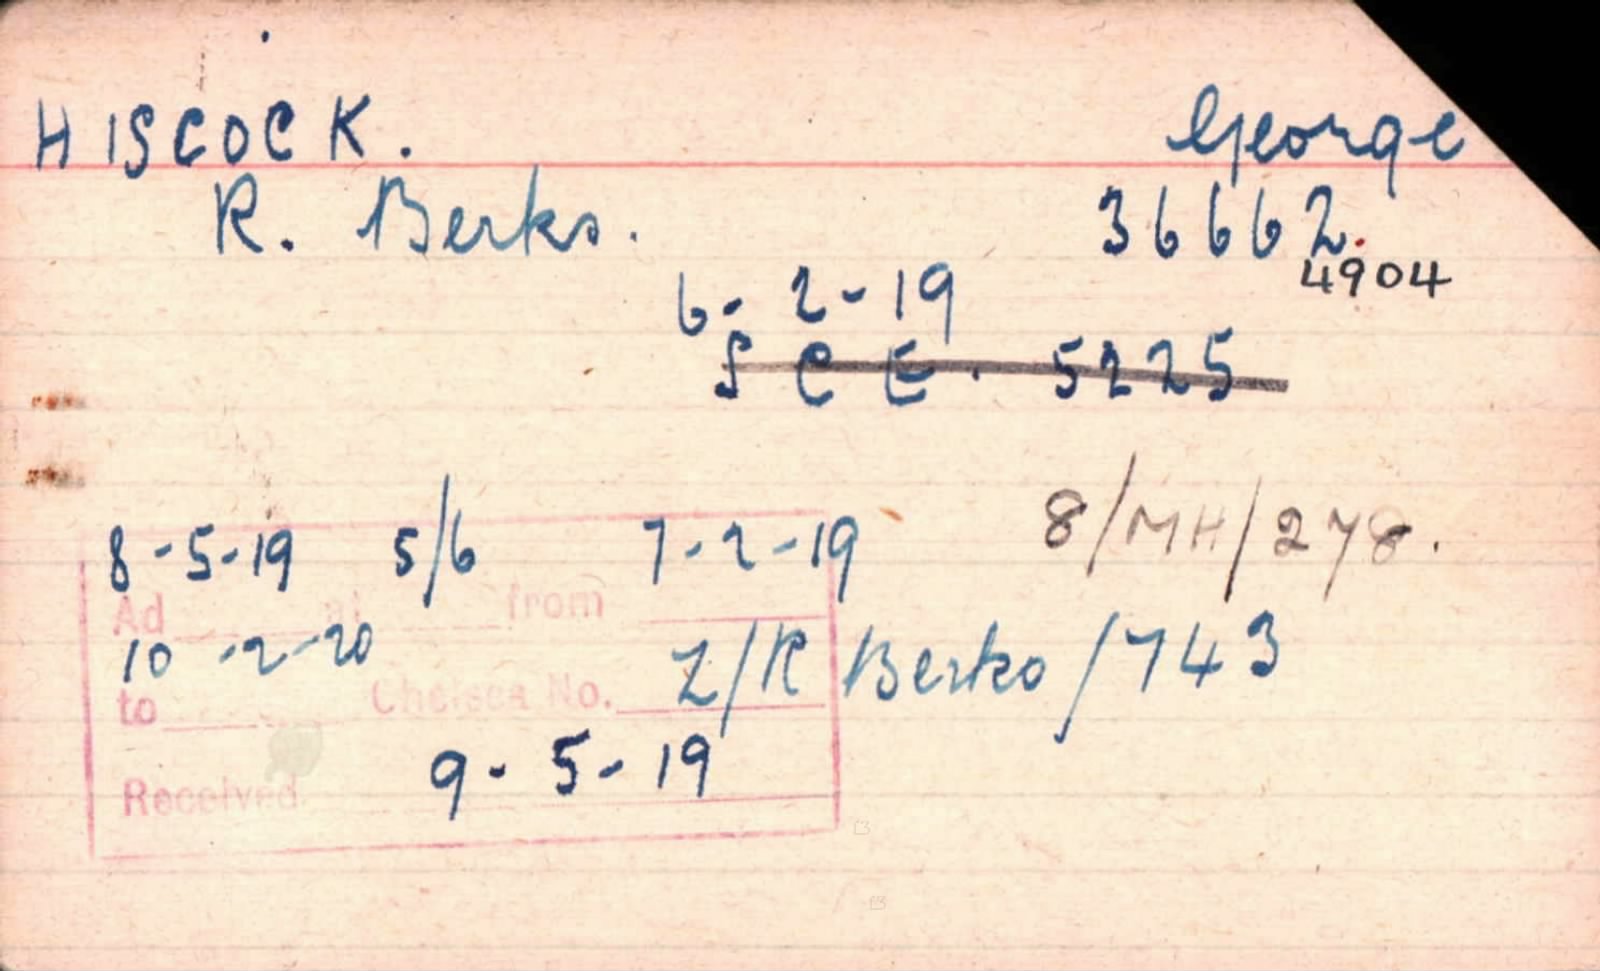 HISCOCK. George
R. Berks. 36662.
4904
6-2-19
SCE. 5225
8-5-19 5/6 7-2-19 8/MH/278.
Ad at from
10-2-20 Z/R Berks/743
to Chelsea No.
9-5-19
Received